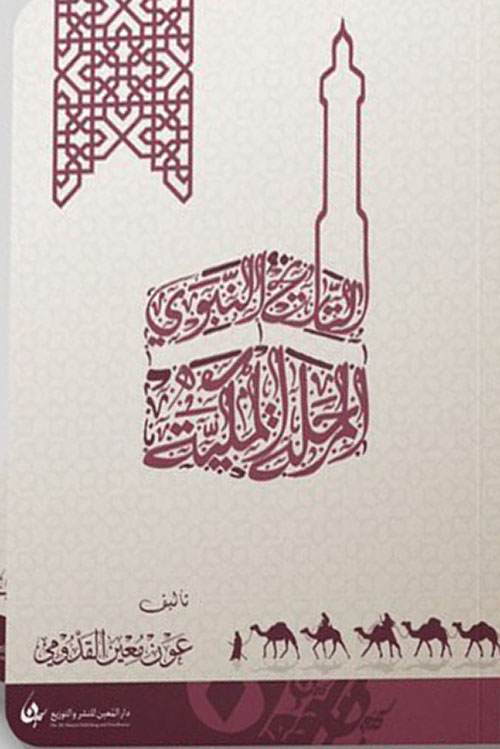 التاريخ النبوي
المرحلة المكية
تأليف
عون معين القدومي
دار المعين للنشر والتوزيع